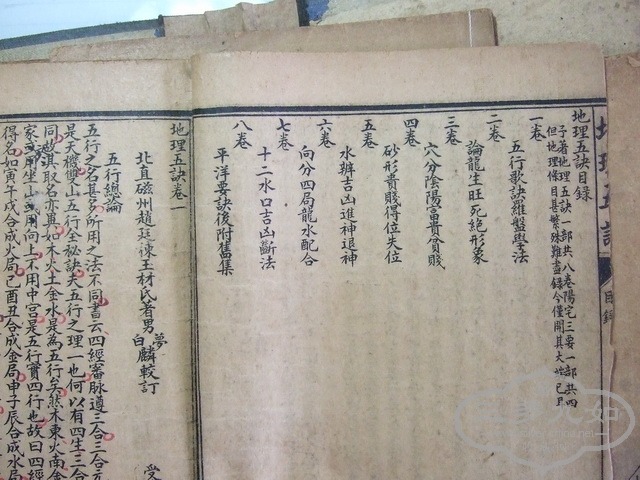 地理五訣目錄
予著地理五訣一部共八卷陽宅三要一部共四
但地理條目甚繁殊難盡錄今僅開其大
一卷
五行歌訣羅盤學法
二卷
論龍生旺死絕形象
三卷
穴分陰陽富貴貧賤
四卷
砂形貴賤得位失位
五卷
水辨吉凶進神退神
六卷
向分四局龍水配合
七卷
十二水口吉凶斷法
八卷
平洋要訣後附舊集
地理五訣
目錄
地理五訣卷一
北直磁州趙廷棟玉材氏著男
夢
白麟較訂
受
五行總論
五行之名甚多所用之法不同書云四經審脉遵三合三合元
是天機雙山五行全秘訣夫五行之理一也何以有四生三合
同故淇取名亦異如木火土金水是為五行矣然木東火南金
家坐山用向上不用中宮是五行實四行也故曰四經
得名如寅午戌合成火局巳酉丑合成金局申子辰合成水局